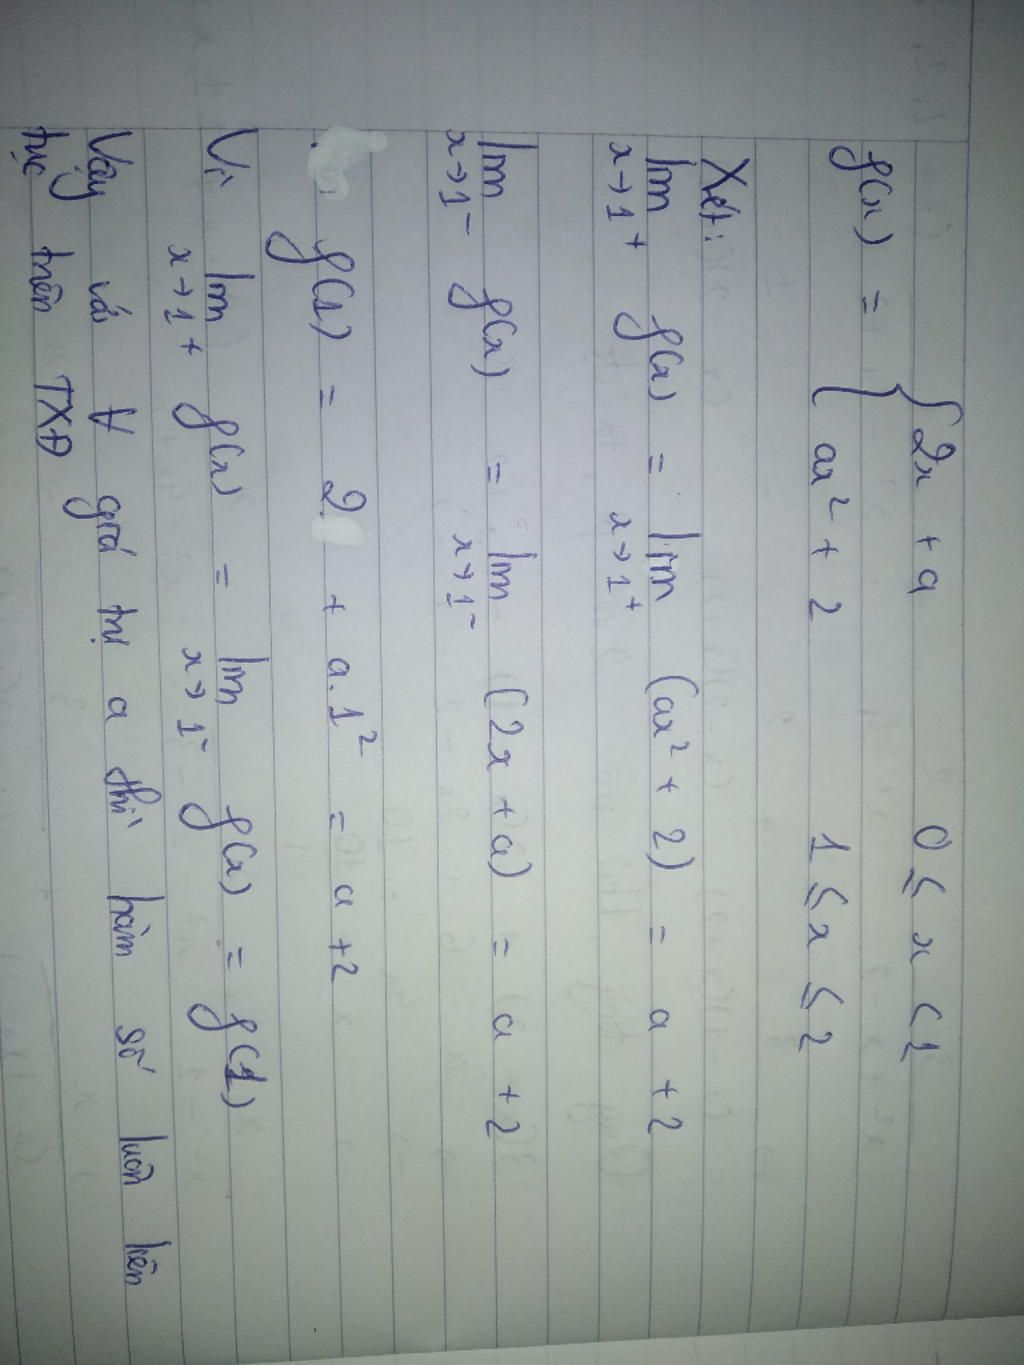 f(x) = { 2x + a 0 ≤ x < 1
{ ax² + 2 1 ≤ x ≤ 2
Xét:
lim f(x) = lim (ax² + 2) = a + 2
x→1⁺ x→1⁺
lim f(x) = lim (2x + a) = a + 2
x→1⁻ x→1⁻
f(1) = 2 + a.1² = a + 2
Vì lim f(x) = lim f(x) = f(1)
x→1⁺ x→1⁻
Vậy với ∀ giá trị a thì hàm số luôn liên
tục trên TXĐ